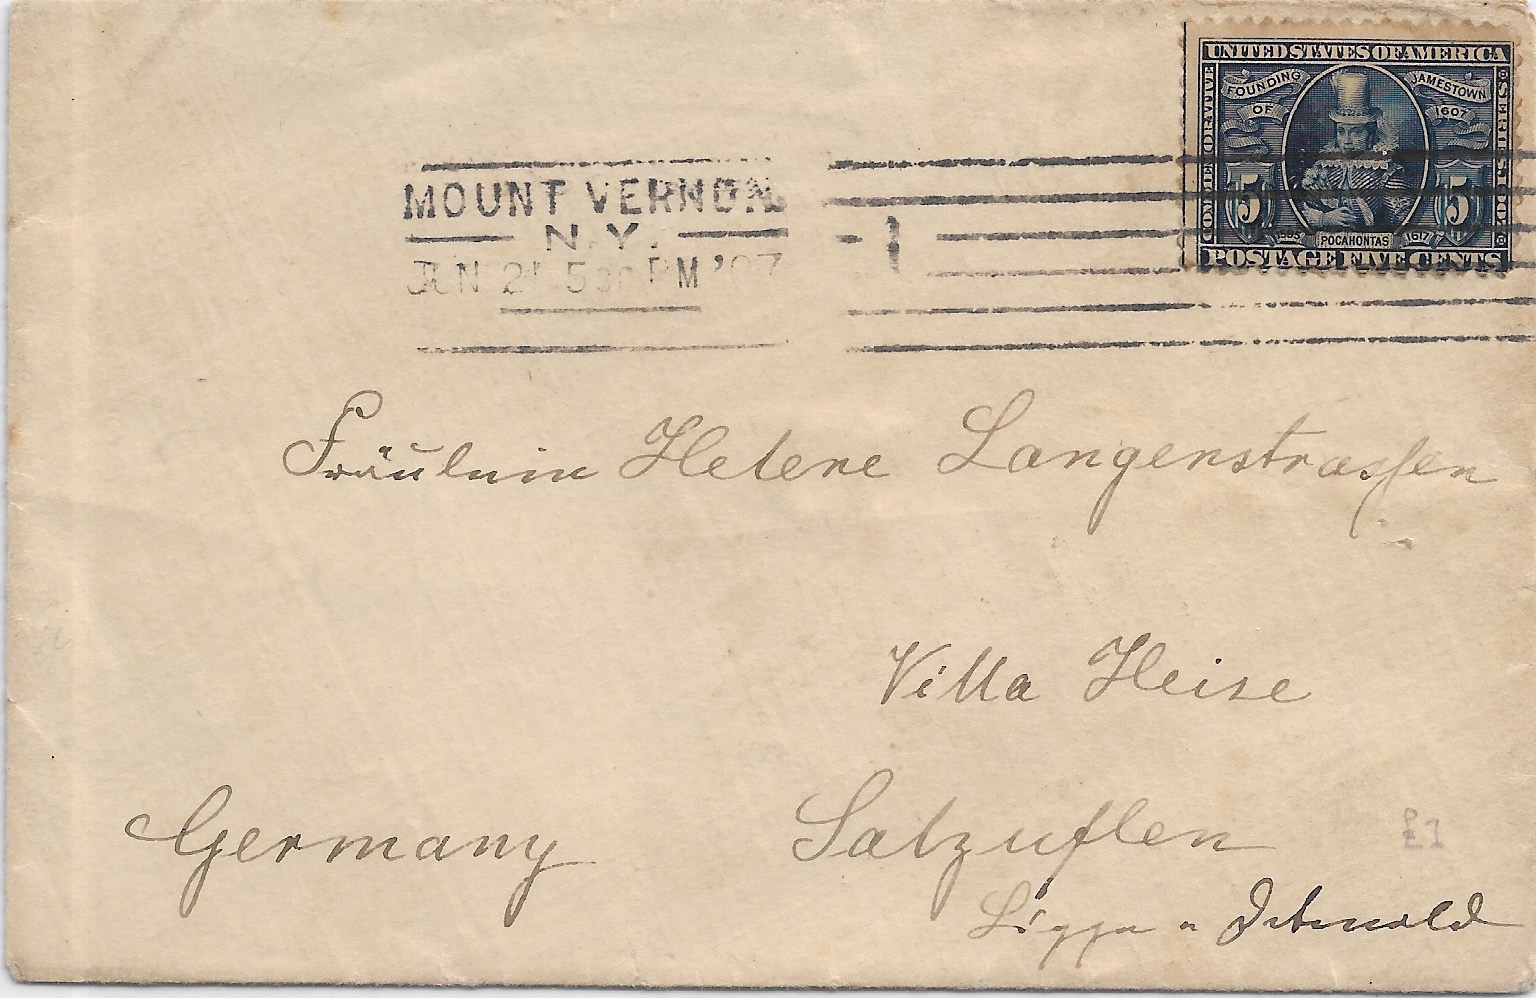 UNITED STATES OF AMERICA
COMMEMORATIVE
FOUNDING OF
JAMESTOWN 1607
SERIES 1907
5 5
1595 POCAHONTAS 1617
POSTAGE FIVE CENTS
MOUNT VERNON
N.Y.
JUN 21 530 PM '07
1
Fräulein Helene Langenstrassen
Villa Heise
Germany Salzuflen
Lippe - Detmold
£1